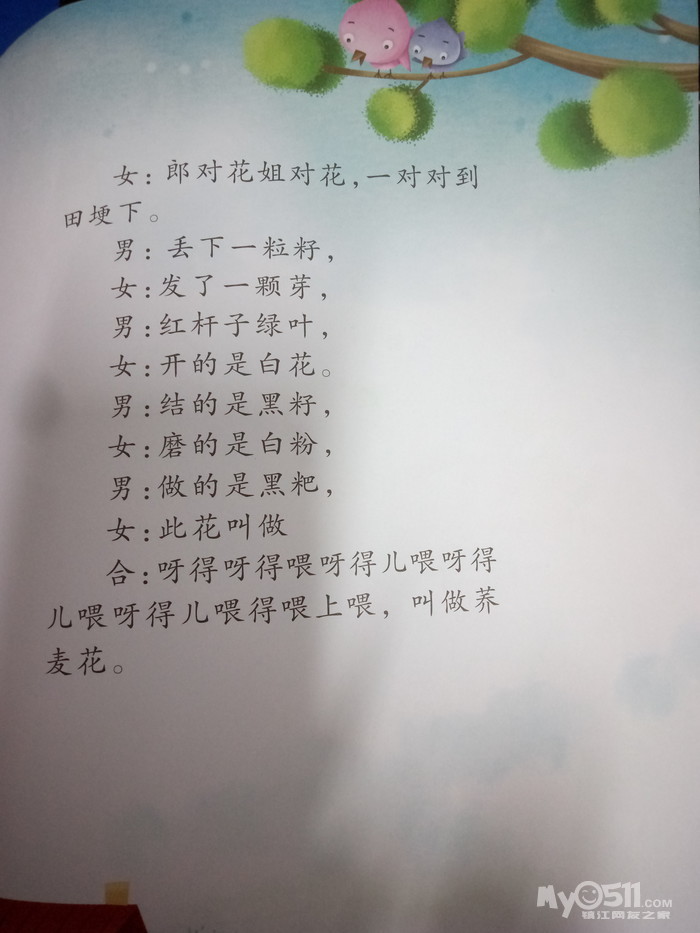 女：郎对花姐对花，一对对到
田埂下。
男：丢下一粒籽，
女：发了一颗芽，
男：红杆子绿叶，
女：开的是白花。
男：结的是黑籽，
女：磨的是白粉，
男：做的是黑粑，
女：此花叫做
合：呀得呀得喂呀得儿喂呀得
儿喂呀得儿喂得喂上喂，叫做荞
麦花。
My0511.COM
镇江网友之家